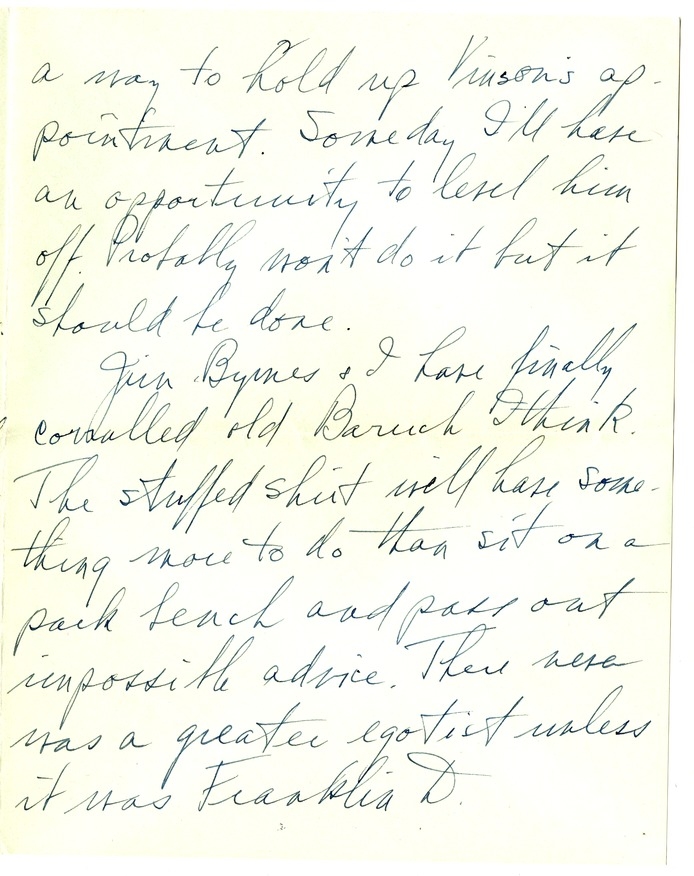 a way to hold up Vinson's ap-
pointment. Someday I'll have
an opportunity to level him
off. Probably won't do it but it
should be done.
Jim Byrnes & I have finally
corralled old Baruch I think.
The stuffed shirt will have some-
thing more to do than sit on a
park bench and pass out
impossible advice. There never
was a greater egotist unless
it was Franklin D.